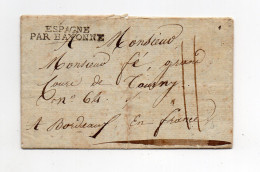 ESPAGNE
PAR BAYONNE
A Monsieur
Monsieur fé, grand
Cours de Tourny
n° 64
A Bordeaux En france